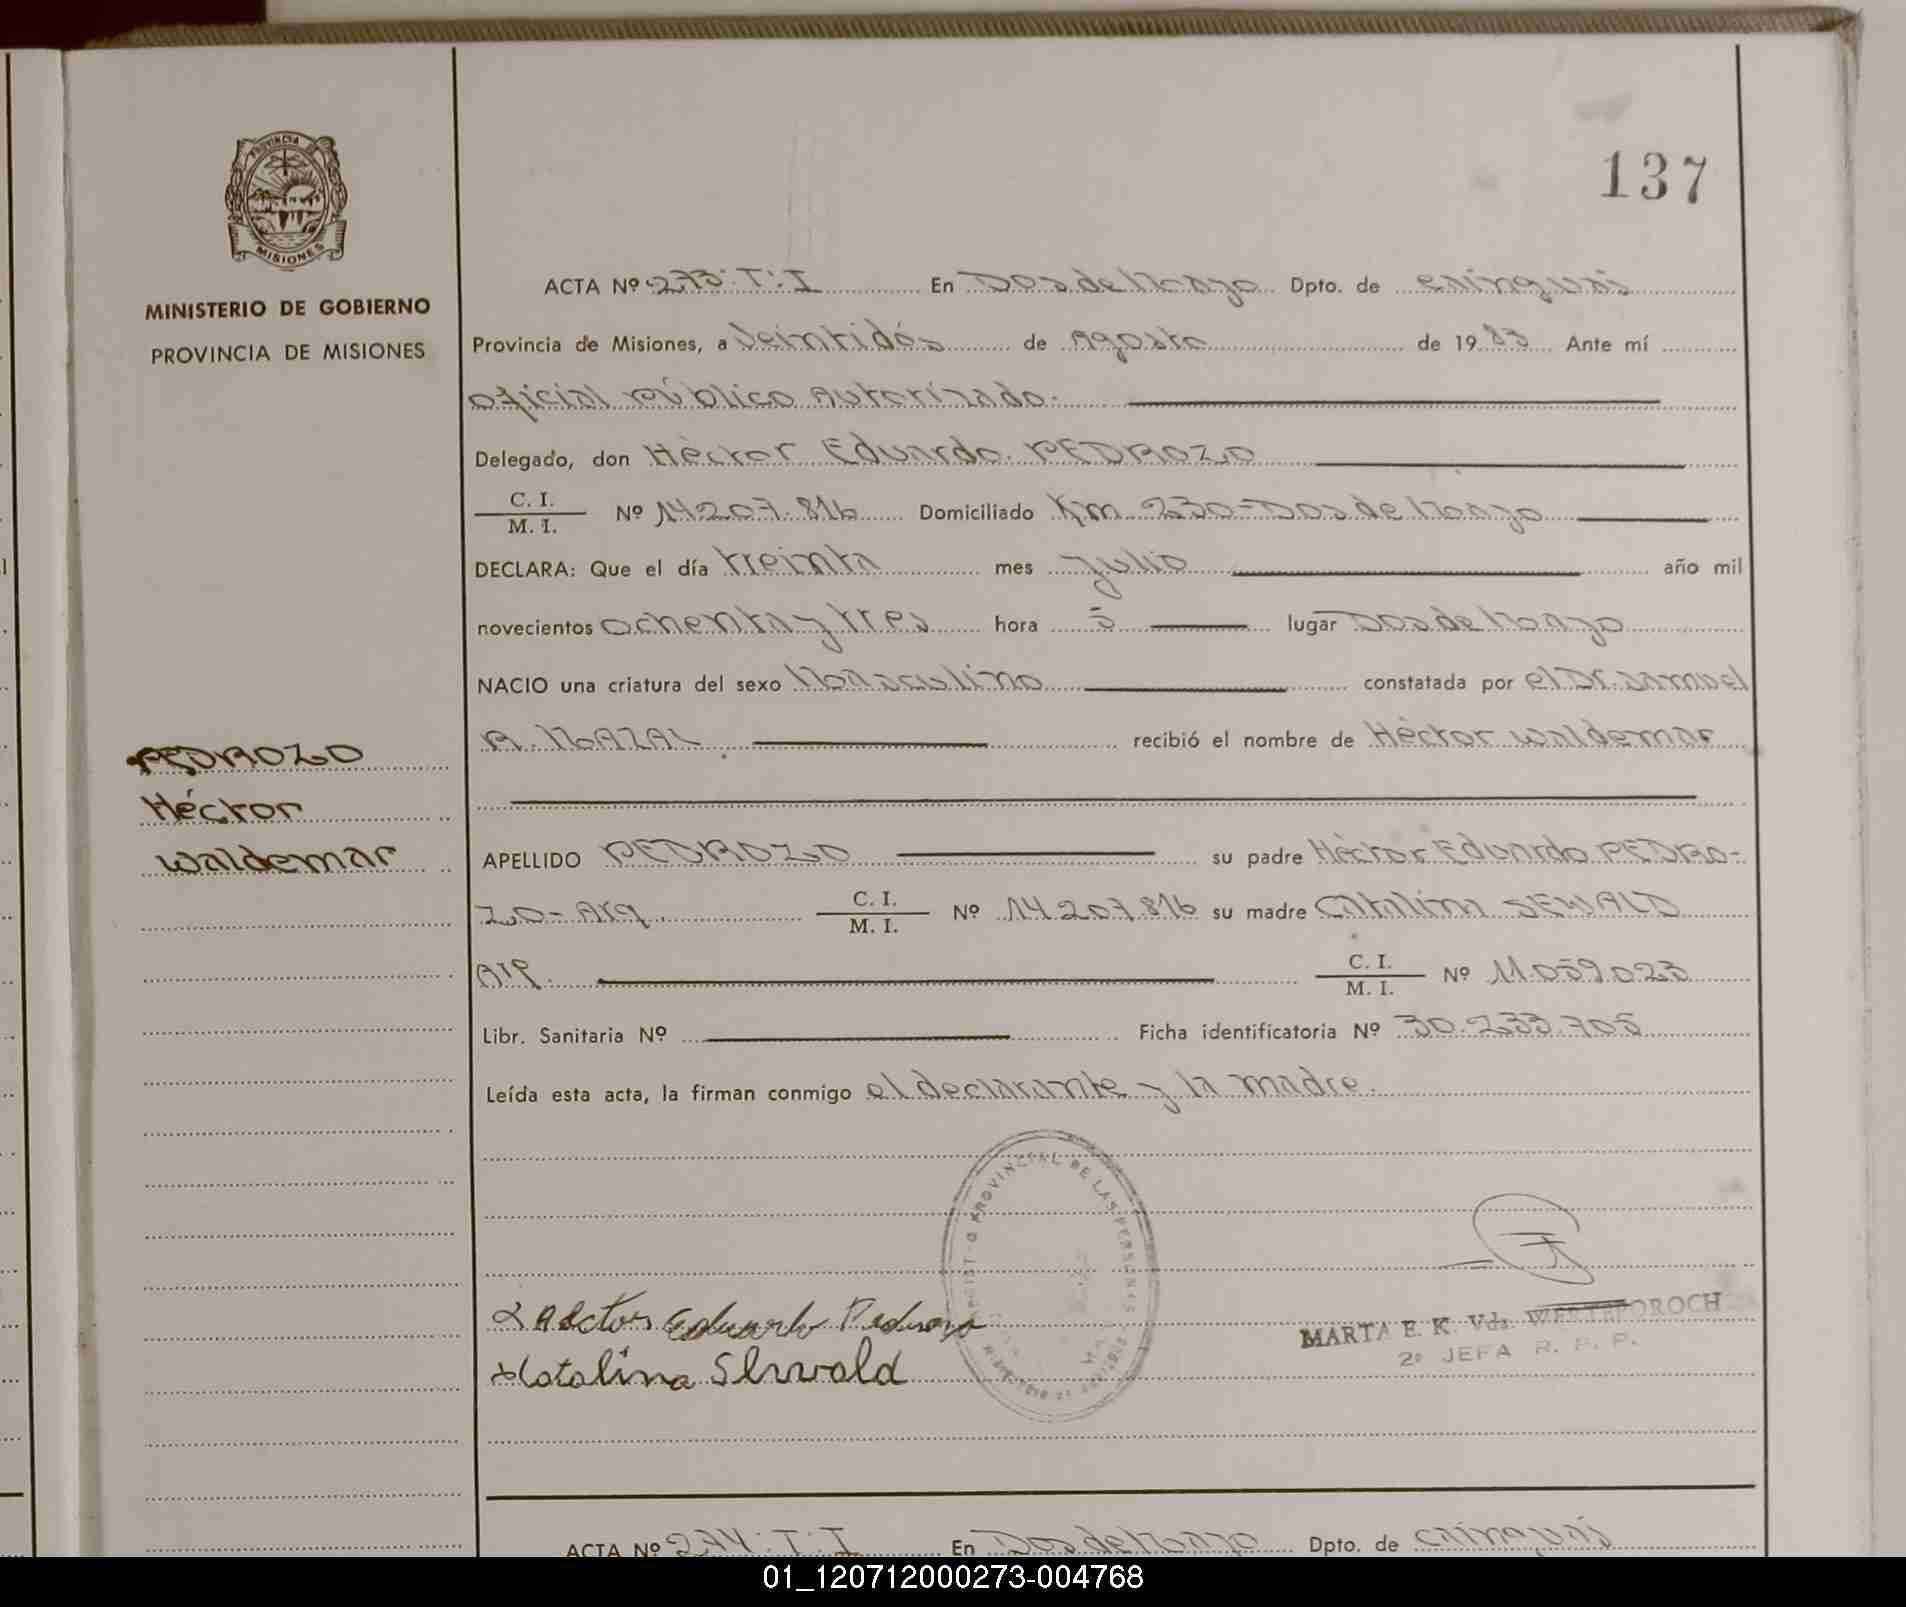 137
PROVINCIA DE
MISIONES
MINISTERIO DE GOBIERNO
PROVINCIA DE MISIONES
PEDROZO
Héctor
Waldemar
ACTA Nº 273.T:I En Dos de Mayo Dpto. de Cainguás
Provincia de Misiones, a Veintidós de Agosto de 1983 Ante mí
Oficial Público Autorizado.
Delegado, don Héctor Eduardo PEDROZO
C. I.
M. I. Nº 14.207.816 Domiciliado Km 230-Dos de Mayo
DECLARA: Que el día treinta mes Julio año mil
novecientos ochenta y tres hora 5 lugar Dos de Mayo
NACIO una criatura del sexo Masculino constatada por el Dr. Samuel
A. MAZAL recibió el nombre de Héctor Waldemar
APELLIDO PEDROZO su padre Héctor Eduardo PEDRO-
ZO-Arg C. I.
M. I. Nº 14.207.816 su madre Catalina SEWALD
Arg. C. I.
M. I. Nº 11.059.023
Libr. Sanitaria Nº Ficha identificatoria Nº 30.233.705
Leída esta acta, la firman conmigo el declarante y la madre.
PROVINCIAL DE LAS PERSONAS
Hector Eduardo Pedrozo
Catalina Sewald
MARTA E. K. Vda.
2º JEFA R. P. P.
ACTA Nº 274.T:I En Dos de Mayo Dpto. de Cainguás
01_120712000273-004768